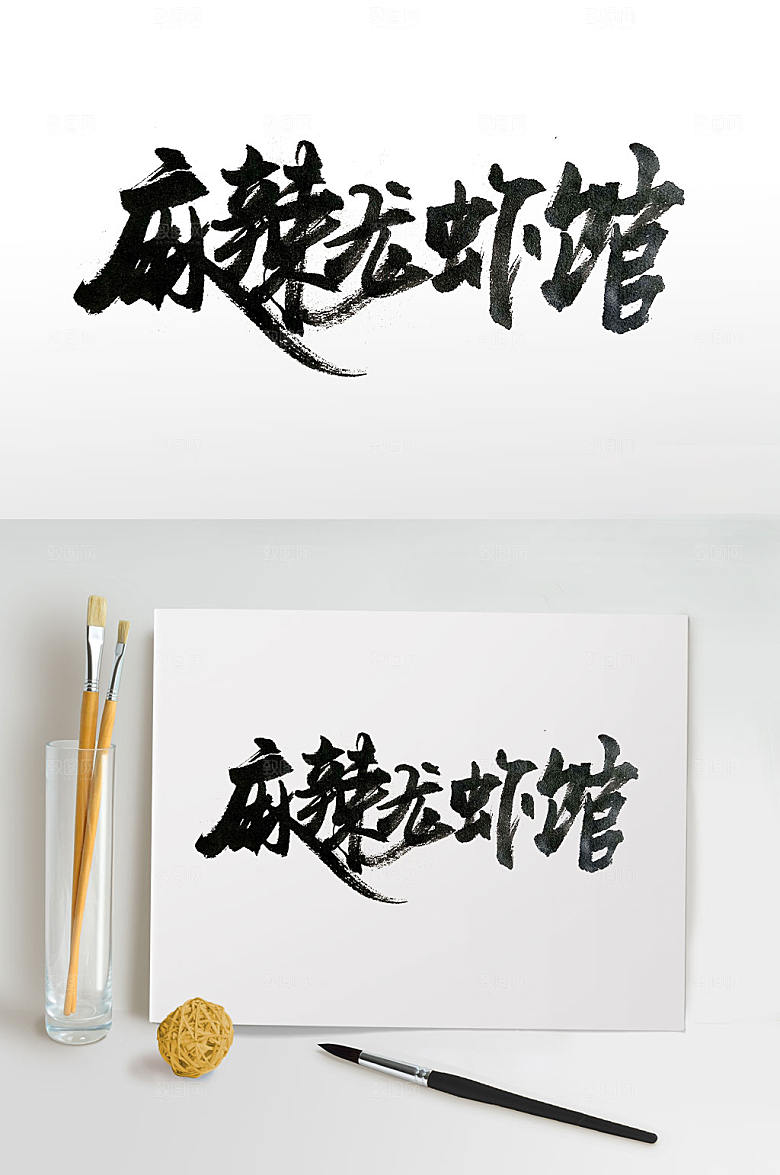 麻辣龙虾馆
麻辣龙虾馆